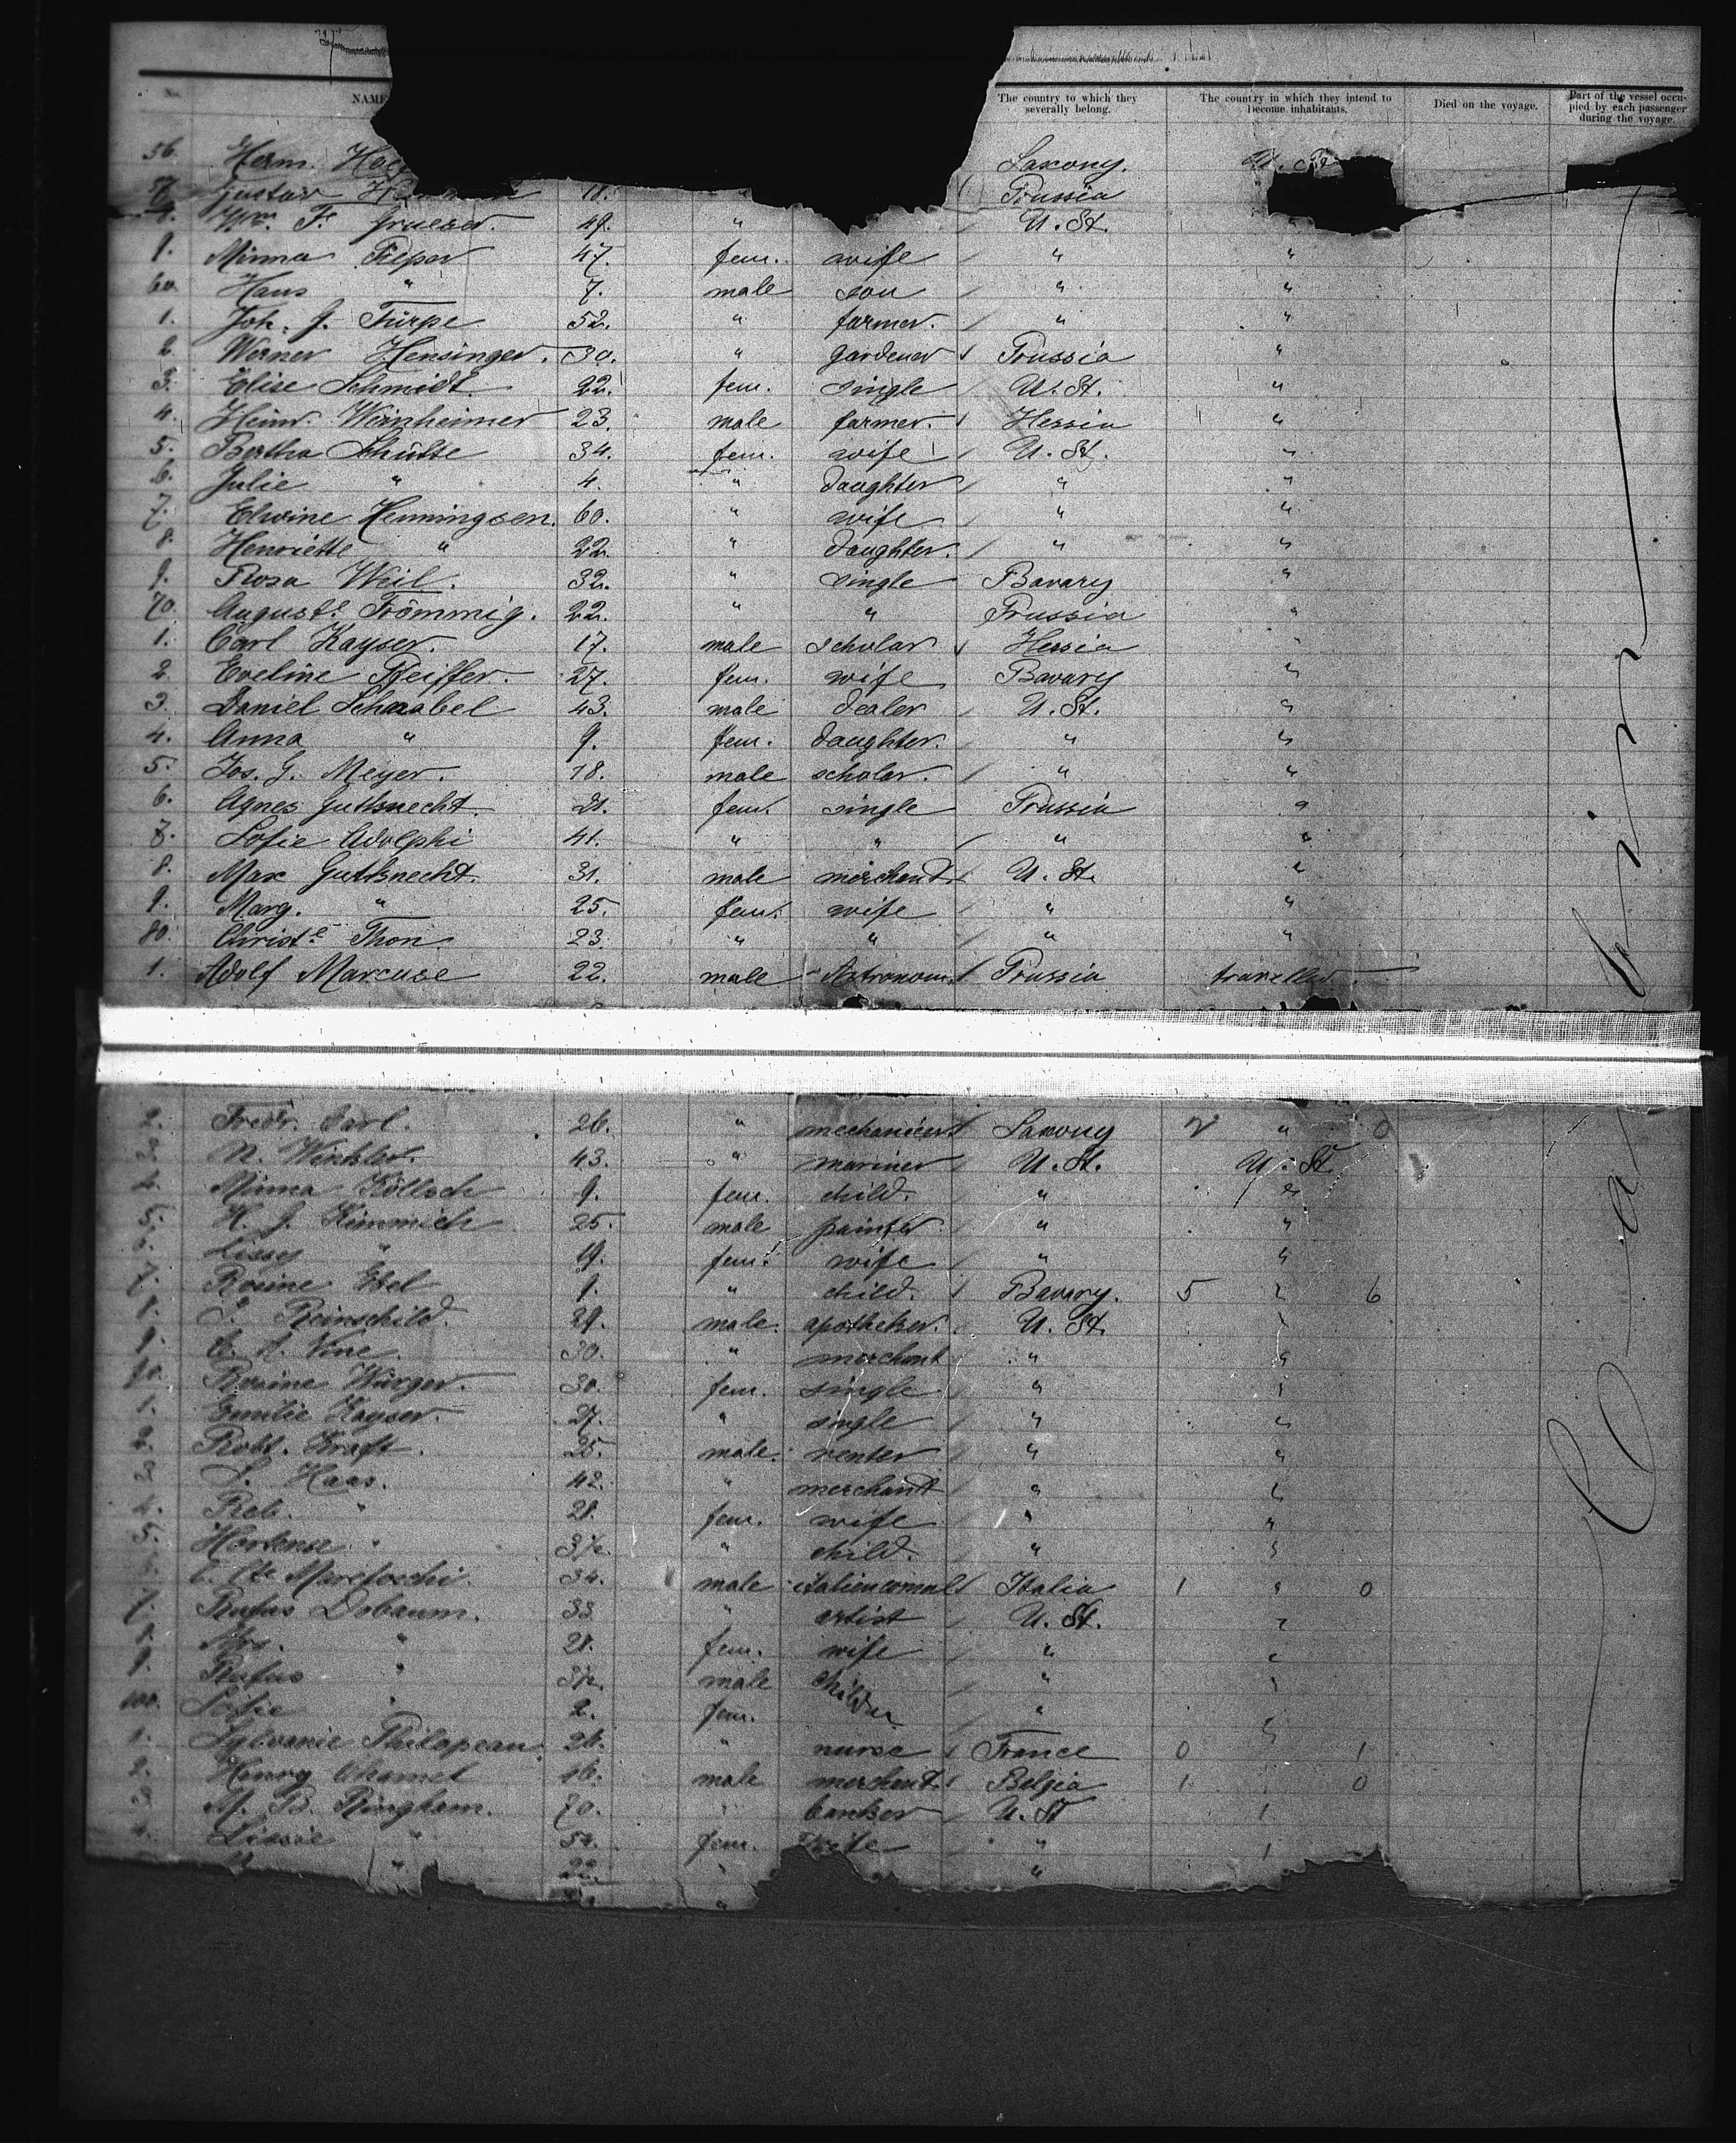 No. NAME The country to which they severally belong. The country in which they intend to become inhabitants. Died on the voyage. Part of the vessel occupied by each passenger during the voyage.
56. Herm. Saxony.
57. Gustav 18. Prussia
Wm. F. 49. " U. St. "
9. Minna Pieper 47. fem. wife " "
60 Hans " 7. male son " "
1. Joh. J. Türpe 52. " farmer. " "
2 Werner Hensinger. 30. " gardener Prussia "
3. Elise Schmidt. 22. fem. single U. St. "
4. Heinr. Weinheimer 23. male farmer. Hessia "
5. Bertha Schütte 34. fem. wife U. St. "
6. Julie " 4. " daughter " "
7. Elwine Henningsen. 60. " wife " "
8. Henriette " 22. " daughter. " "
9. Rosa Weil. 32. " single Bavary "
70. August.e Frömmig. 22. " " Prussia "
1. Carl Kayser. 17. male scholar Hessia "
2. Eveline Pfeiffer. 27. fem. wife Bavary "
3. Daniel Schnabel 43. male dealer U. St. "
4. Anna " 9. fem. daughter. " "
5. Jos. G. Meyer. 18. male scholar. " "
6. Agnes Guthsnecht. 21. fem. single Prussia "
7. Sofie Adolphi 41. " " " "
8. Max Guthsnecht. 31. male merchant U. St. "
9. Marg. " 25. fem. wife " "
80. Christ.e Thon. 23. " " " "
1. Adolf Marcuse 22. male Astronom. Prussia traveller.
2. Fredr. Carl. 26. " Saxony 2 " 0
3. N. Winkler. 43. " mariner U. St. U. St
4. Minna Költsch 9. fem. child. " "
5. H. J. Kimmich 25. male painter " "
6. Lissy " 19. fem. wife " "
7. Rosine Etel 9. " child. Bavary. 5 " 6
8. Reinschild. 29. male. apotheker. U. St. "
9. C. A. Vine. 30. " merchant " "
90. Rosine Würger. 30. fem. single " "
1. Emilie Kayser. 27. " single " "
2. Robt. Kraft. 25. male. renter " "
3. S. Haas. 42. " merchant " "
4. Reb. " 28. fem. wife " "
5. Hortense " 3½. " child. " "
6. 34. male Italia 1 " 0
7. Rufus Dobaum. 33 " artist U. St. "
8. Mrs. " 28. fem. wife " "
9. Rufus " 3½. male children " "
100. Sofie " 2. fem. " "
1. Sylvanie Philapeau. 26. " nurse France 0 " 1
2. Henry Chamet 16. male merchant. Belgia 1 0
3. M. B. Ringham. 70. " banker U. St
4. Lissie " 52. fem. wife "
" 22. " "
Cabin